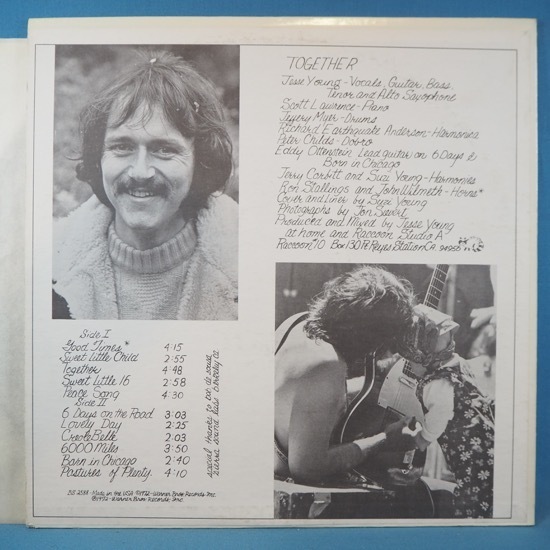 TOGETHER
Jesse Young - Vocals, Guitar, Bass,
Tenor and Alto Saxophone
Scott Lawrence - Piano
Jeffery Myer - Drums
Richard Earthquake Anderson - Harmonica
Peter Childs - Dobro
Eddy Ottenstein Lead guitar on 6 Days &
Born in Chicago
Jerry Corbitt and Suzi Young - Harmonies
Ron Stallings and John Wilmeth - Horns*
Cover and Liner by Suzi Young
Photographs by Jon Sievert
Produced and Mixed by Jesse Young
at home and Raccoon Studio A
Raccoon #10 Box 130 Pt. Reyes Station CA. 94956
Side I
Good Times* 4:15
Sweet Little Child 2:55
Together 4:48
Sweet Little 16 2:58
Peace Song 4:30
Side II
6 Days on the Road 3:03
Lovely Day 2:25
Creole Belle 2:03
6000 Miles 3:50
Born in Chicago 2:40
Pastures of Plenty 4:10
special thanks to pat at sound,
sierra sound labs berkeley ca
BS 2588 - Made in the USA ℗1972 - Warner Bros. Records Inc.
©1972 - Warner Bros. Records, Inc.